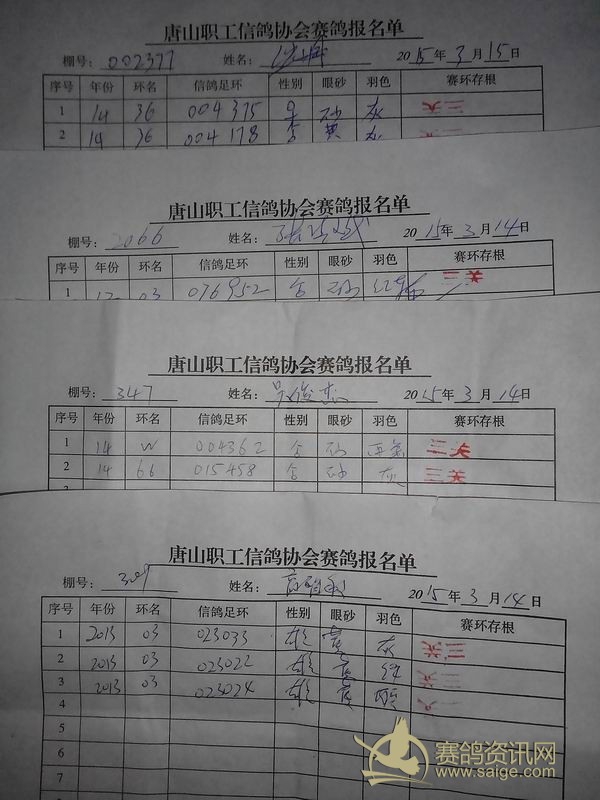 唐山职工信鸽协会赛鸽报名单
棚号: 002377 姓名: 2015年3月15日
序号 年份 环名 信鸽足环 性别 眼砂 羽色 赛环存根
1 14 36 004375 砂 灰 三关
2 14 36 004178 黄 灰
唐山职工信鸽协会赛鸽报名单
棚号: 2066 姓名: 2015年3月14日
序号 年份 环名 信鸽足环 性别 眼砂 羽色 赛环存根
1 12 03 076952 砂 三关
唐山职工信鸽协会赛鸽报名单
棚号: 347 姓名: 2015年3月14日
序号 年份 环名 信鸽足环 性别 眼砂 羽色 赛环存根
1 14 W 004362 砂 三关
2 14 66 015458 砂 灰 三关
唐山职工信鸽协会赛鸽报名单
棚号: 309 姓名: 2015年3月14日
序号 年份 环名 信鸽足环 性别 眼砂 羽色 赛环存根
1 2013 03 023033 雄 黄 灰 三关
2 2013 03 023022 雄 黄 三关
3 2013 03 023024 雄 黄 三关
4
5
6
7
8
赛鸽资讯网
www.saige.com